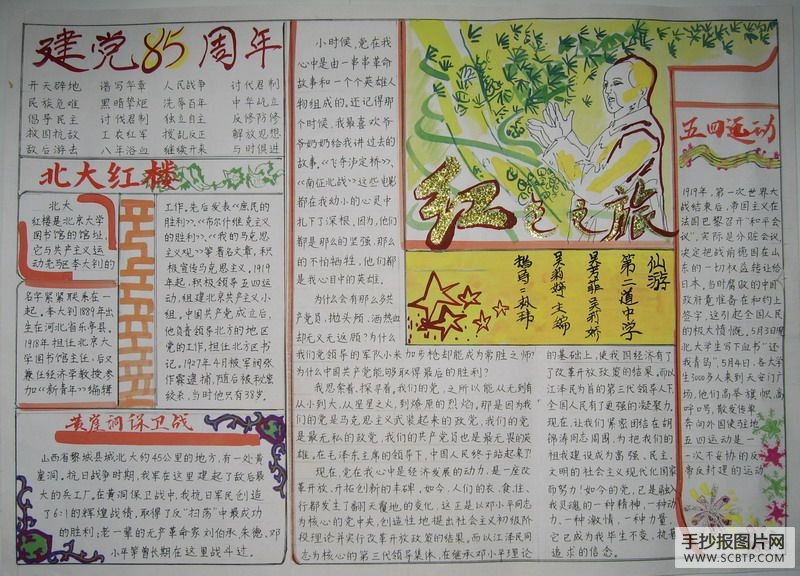 建党85周年
开天辟地 谱写华章 人民战争 讨代君制
民族危难 黑暗擎炬 浣辱百年 中华屹立
倡导民主 讨伐君制 独立自主 反修防修
救国抗敌 工农红军 拨乱反正 解放思想
敌后游去 八年浴血 继续开来 与时俱进
北大红楼
北大
红楼是北京大学
图书馆的馆址,
它与共产主义运
动先驱李大钊的
名字紧紧联系在一
起。李大钊1889年出
生在河北省乐亭县。
1918年担任北京大
学图书馆主任、后又
兼任经济学教授、参
加《新青年》编辑
工作。先后发表《庶民的
胜利》、《布尔什维克主义
的胜利》、《我的马克思
主义观》等著名文章,积
极宣传马克思主义。1919
年起,积极领导五四运
动,组建北京共产主义小
组。中国共产党成立后,
他负责领导北方的地区
党的工作,担任北方区书
记。1927年4月被军阀张
作霖逮捕,随后被秘密
绞长,当时他只有38岁。
黄崖洞保卫战
山西省黎城县城北大约45公里的地方,有一处黄
崖洞。抗日战争时期,我军在这里建起了敌后最
大的兵工厂。在黄洞保卫战中,我抗日军民创造
了6:1的辉煌战绩,取得了反"扫荡"中最成功
的胜利;老一辈的无产革命家刘伯承、朱德、邓
小平等曾长期在这里战斗过。
小时候,党在我
心中是由一串串革命
故事和一个个英雄人
物组成的。还记得那
个时候,我最喜欢爷
爷奶奶给我讲过去的
故事。《飞夺泸定桥》、
《南征北战》这些电影
都在我幼小的心灵中
扎下了深根,因为,他们
都是那么的坚强,那么
的不怕牺牲,他们都
是我心目中的英雄。
为什么会有那么多共
产党员,抛头颅、洒热血
却无义无返顾?为什么
我们党领导的军队小米加步枪却能成为常胜之师?
为什么中国共产党能够取得最后的胜利?
我思索着,探寻着,我们的党,之所以能从无到有
从小到大,从星星之火,到燎原的烈焰,那是因为我
们的党是马克思主义武装起来的政党,我们的党
是最无私的政党,我们的共产党员也是最无畏的英
雄。在毛泽东主席的领导下,中国人民终于站起来了
现在,党在我心中是经济发展的动力,是一座改
革开放、开拓创新的丰碑。如今、人们的衣、食、住、
行都发生了翻天覆地的变化,这正是以邓小平同志
为核心的党中央,创造性地提出社会主义初级阶
段理论并实行改革开放政策的结果。而以江泽民同
志为核心的第三代领导集体,在继承邓小平理论
红色之旅
仙游
第二道中学
吴菊婷 主编
的基础上,使我国经济有了
改革开放政策的结果。而以
江泽民为首的第三代领导人下,
全国人民有了更强的凝聚力。
现在,让我们紧密团结在胡
锦涛同志周围,为把我们的
祖我建设成为富强、民主、
文明的社会主义现代化国家
而努力!如今的党,已是融入
我灵魂的一种精神,一种动
力、一种激情、一种力量。
它已成为我毕生不变,执着
追求的信念。
五四运动
1919年,第一次世界大
战结束后,帝国主义在
法国巴黎召开"和平会
议",实际是分脏会议,
决定把战前德国在山
东的一切权益转让给
日本,当时腐败的中国
政府竟准备在和约上
签字,这引起全国人民
的极大愤慨。5月3日晚
北大学生写下血书"还
我青岛"。5月4日,各大学
生3000多人来到天安门广
场,他们高举旗帜,高
呼口号、散发传单
奔向外国使驻地
五四运动是一
次不妥协的反
帝反封建的运动
手抄报图片网
WWW.SCBTP.COM